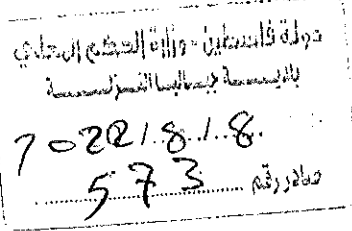 دولة فلسطين - وزارة الحكم المحلي
بلديـــة جبـاليـا النـزلـــة
2022/8/8
صادر رقم 573